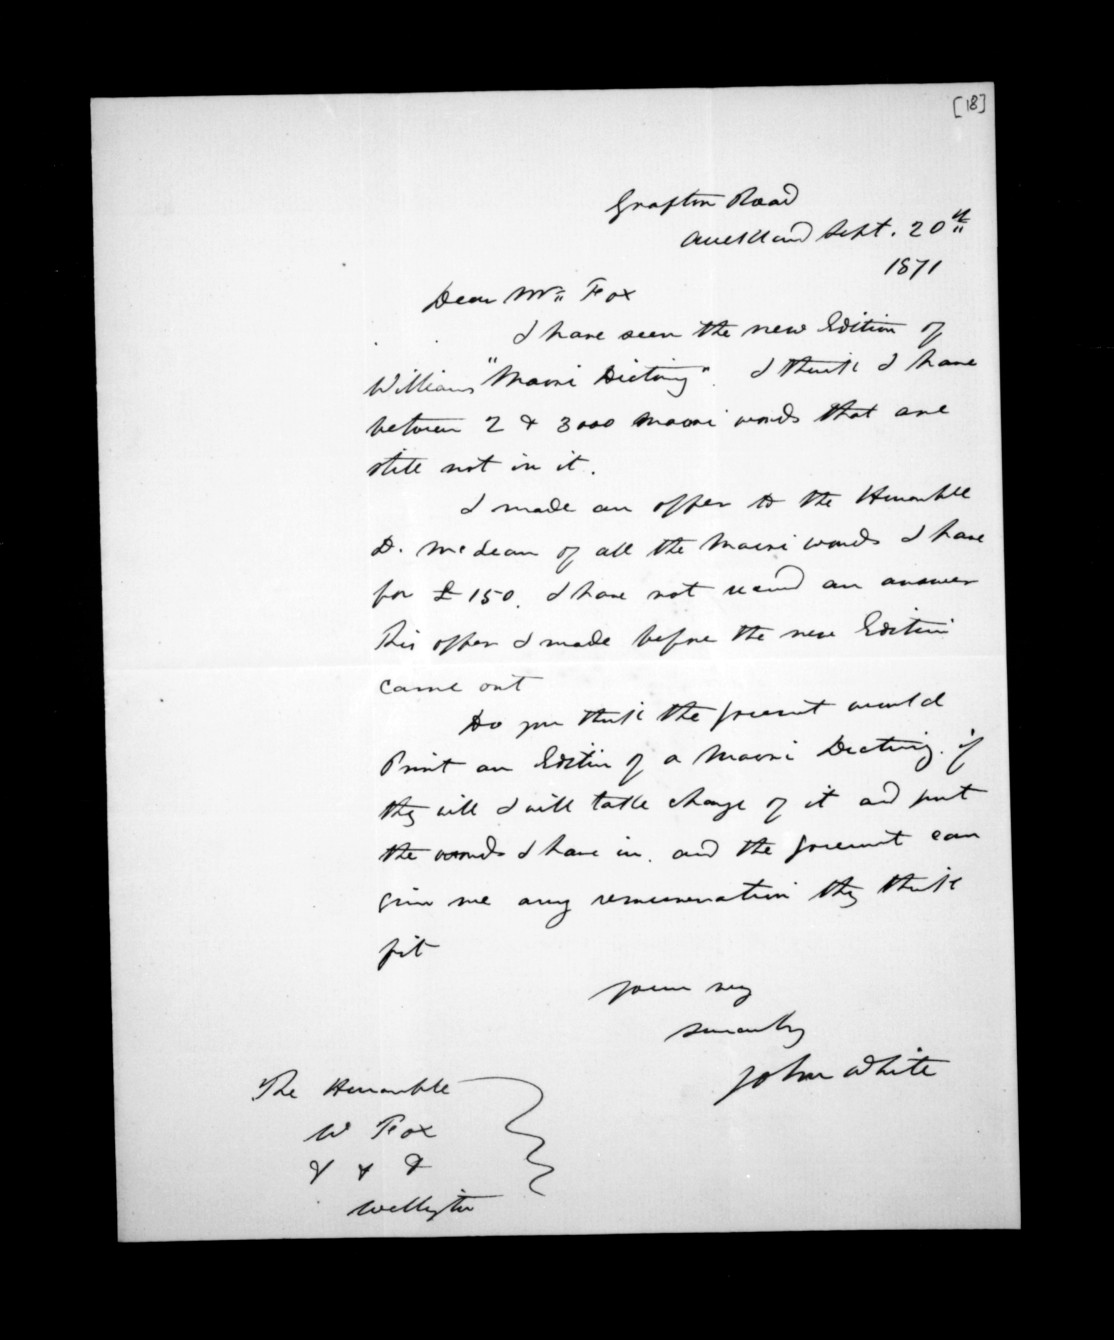 [18]
Grafton Road
Auckland Sept. 20th
1871
Dear Mr Fox
I have seen the new Edition of
Williams "Maori Dictiony". I think I have
between 2 & 3000 Maori words that are
still not in it.
I made an offer to the Honorable
D. McLean of all the Maori words I have
for £150. I have not recived an answer
this offer I made before the new Edition
came out
Do you think the Goverment would
Print an Edition of a Maori Dictiony. if
they will I will take charge of it and put
the words I have in. and the Goverment can
give me any remuneration they think
fit
yours very
sincerely
John White
The Honorable
W Fox
& & &
Wellington